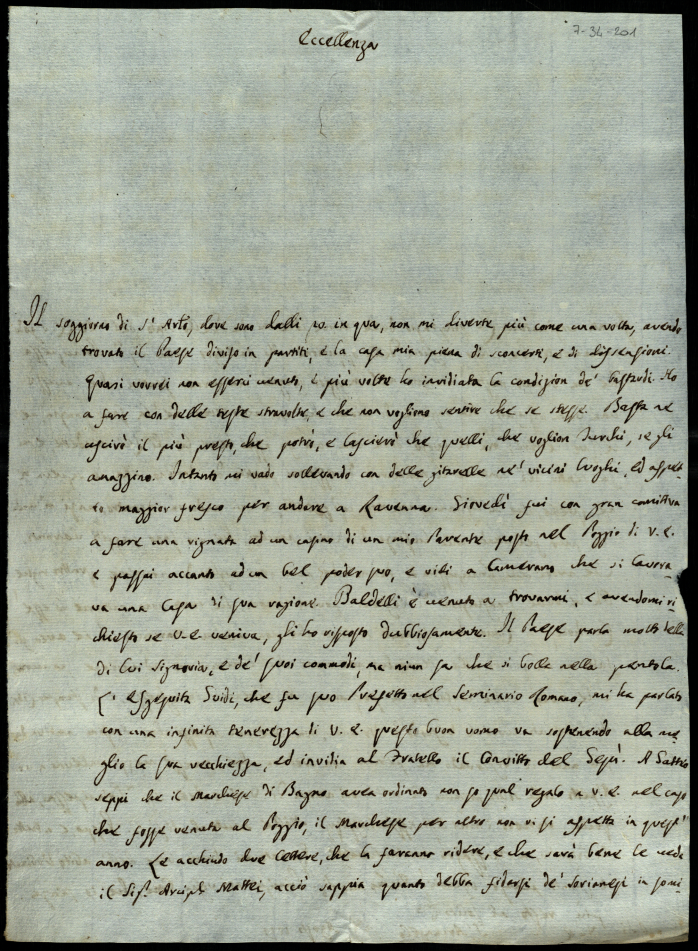 7-34-201
Eccellenza
Il soggiorno di S.t Arto, dove sono dalli 20. in qua, non mi diverte più come una volta, avendo
trovato il Paese diviso in partiti, e la casa mia piena di sconcerti, e di dissensioni.
Quasi vorrei non esserci venuto, e più volte ho invidiata la condizion de' bastardi. Ho
a fare con delle teste stravolte, e che non vogliono sentire che se stesse. Basta ne
uscirò il più presto, che potrò, e lascierò che quelli, che voglion
amazzino. Intanto mi vado sollevando con delle gitarelle ne' vicini luoghi, ed aspet-
to maggior fresco per andare a Ravenna. Giovedì fui con gran comitiva
a fare una vignata ad un casino di un mio Parente posto nel Poggio di V. E.
e passai accanto ad un bel poder suo, e vidi a che si lavora-
va una Casa di sua ragione. Baldelli è venuto a trovarmi, e avendomi ri-
chiesto se V. E. veniva, gli ho risposto dubbiosamente. Il Paese parla molto della
di lui Signoria, e de' suoi commodi, ma niun sa che si bolle nella pentola.
L' Esgesuita Guidi, che fu suo Prefetto nel Seminario Romano, mi ha parlato
con una infinita tenerezza di V. E. questo buon uomo va sostenendo alla me-
glio la sua vecchiezza, ed invidia al Fratello il Convitto del Gesù. A Gatteo
seppi che il Marchese di Bagno avea ordinato non so qual regalo a V. E. nel caso
che fosse venuta al Poggio, il Marchese per altro non vi si aspetta in quest'
anno. Le acchiudo due lettere, che la faranno ridere, e che sarà bene le veda
il Sig.r Arcip.te Mattei, acciò sappia quanto debba fidarsi de' Sorianesi in somi-